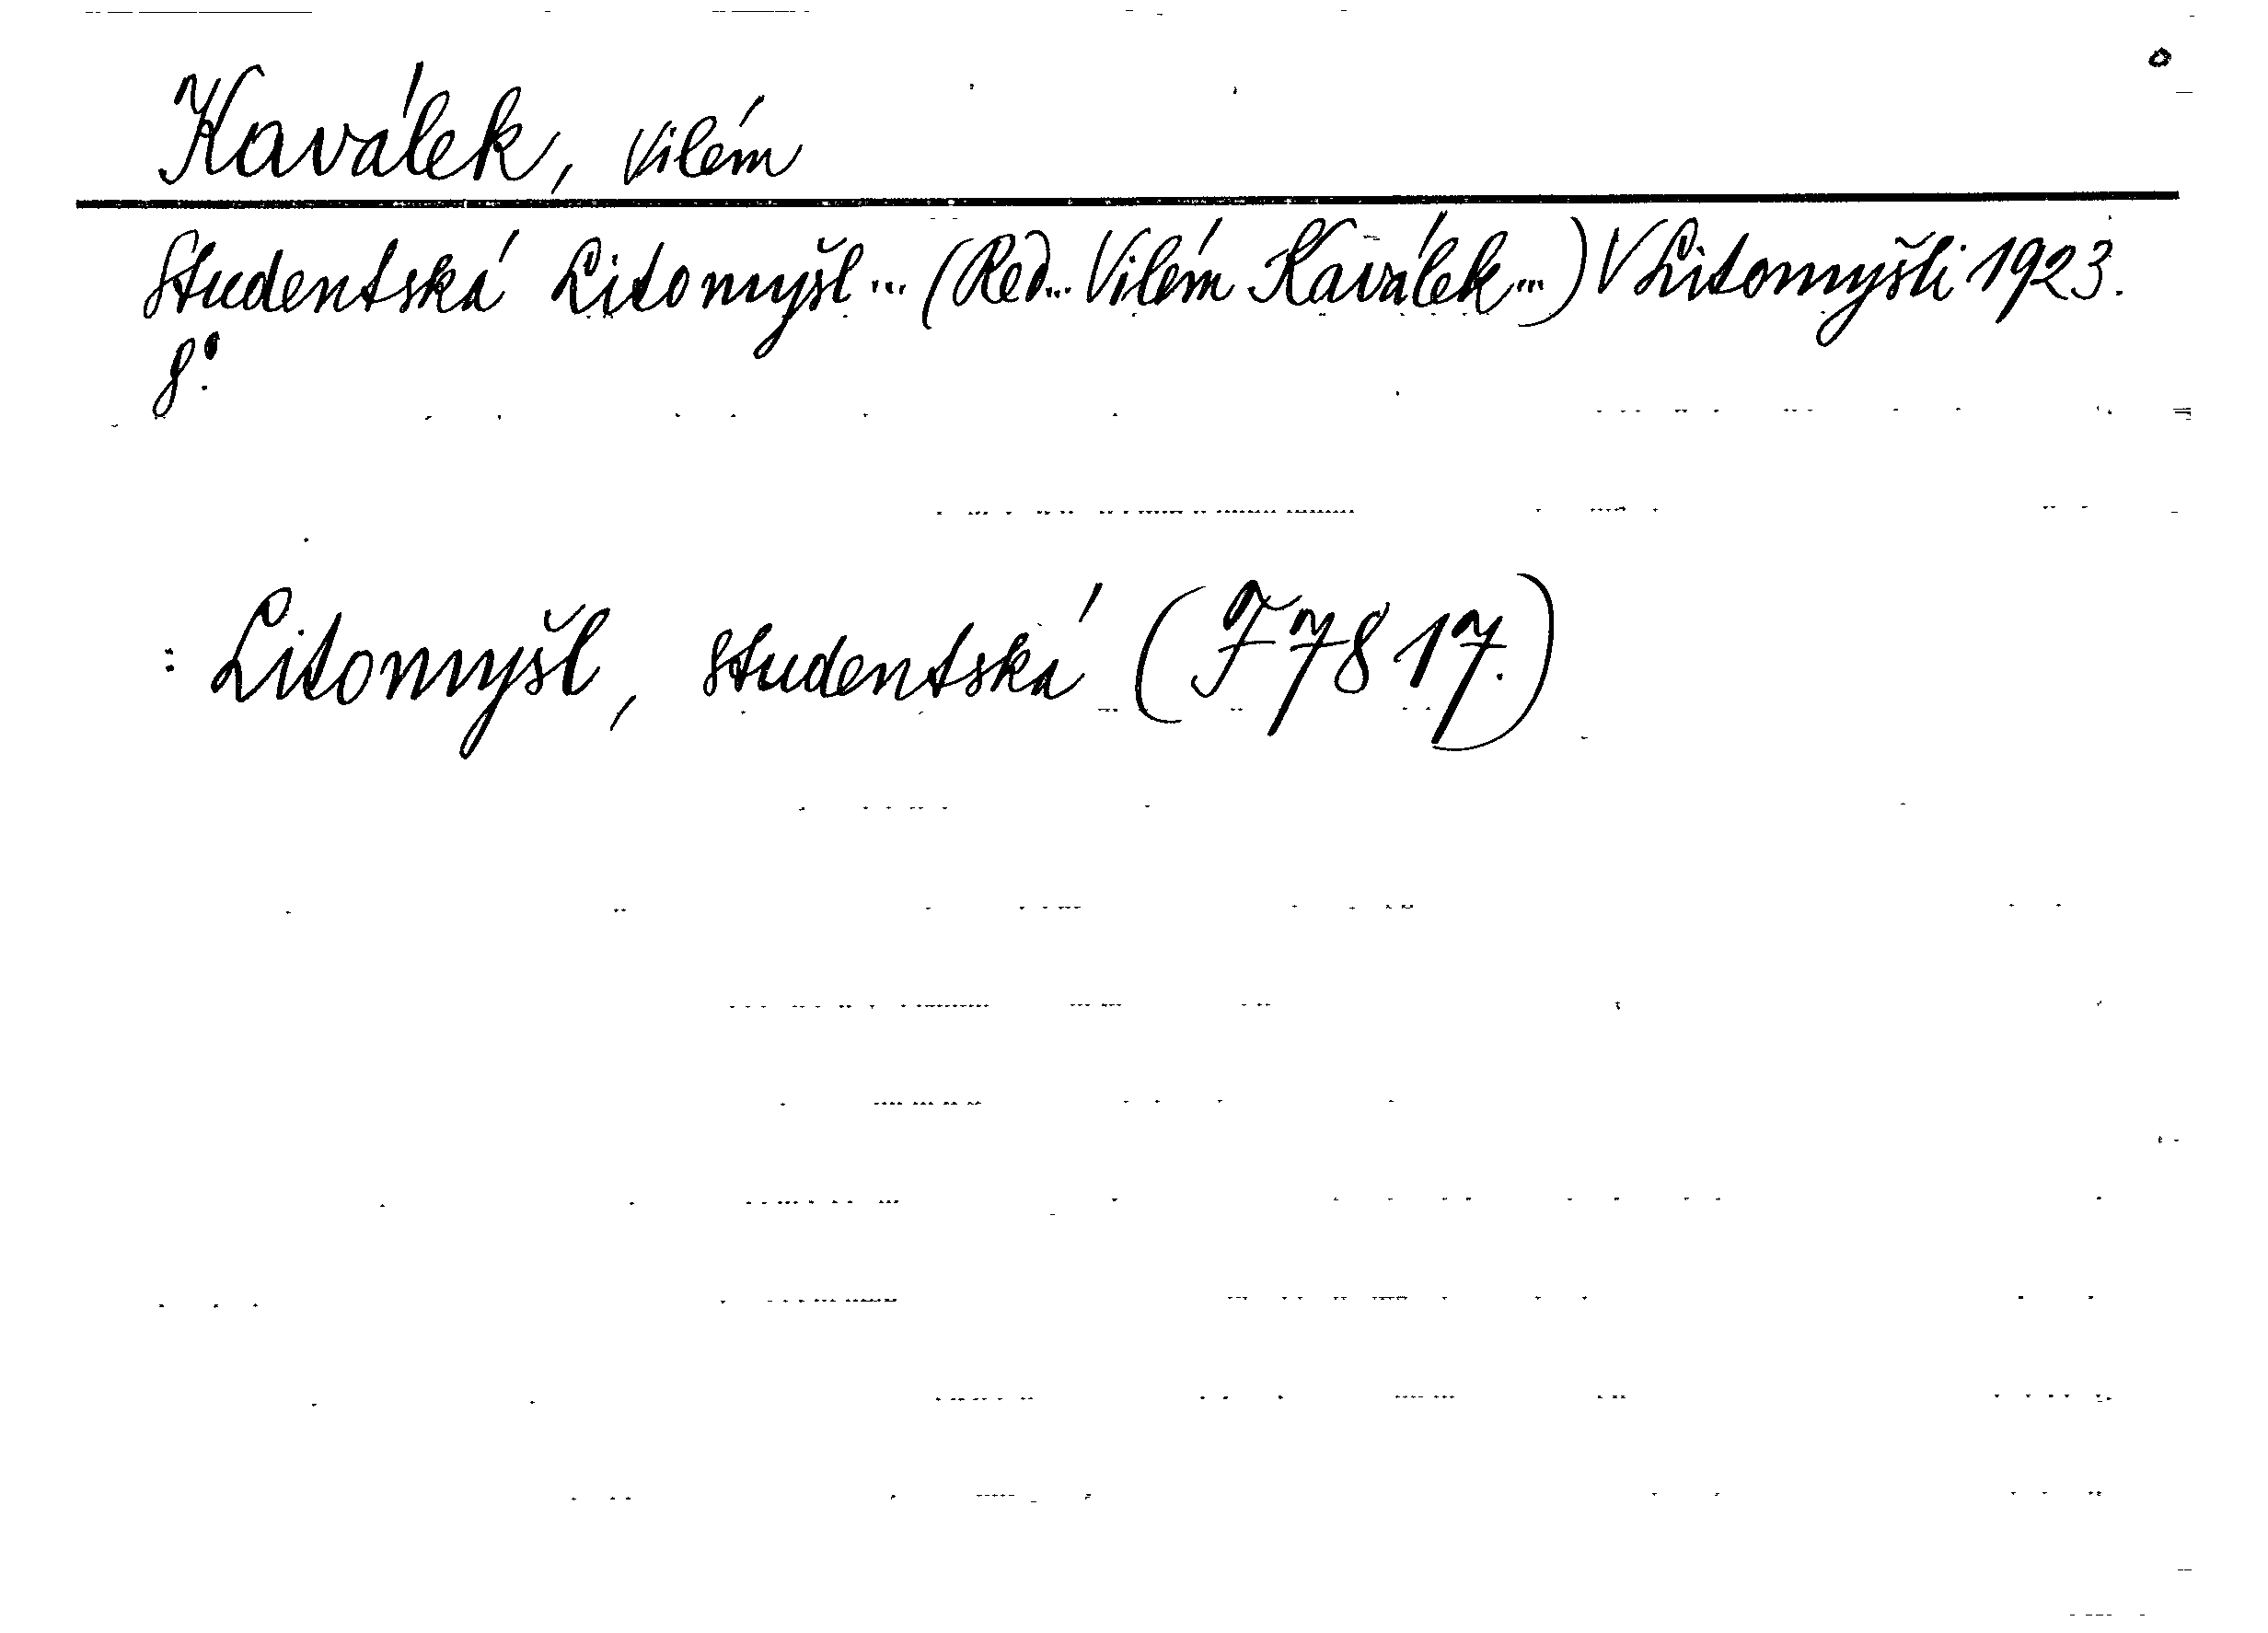 Kaválek, Vilém
Studentská Litomyšl... (Red... Vilém Kaválek...) V Litomyšli 1923.
8°.
: Litomyšl, studentská (F 7817.)